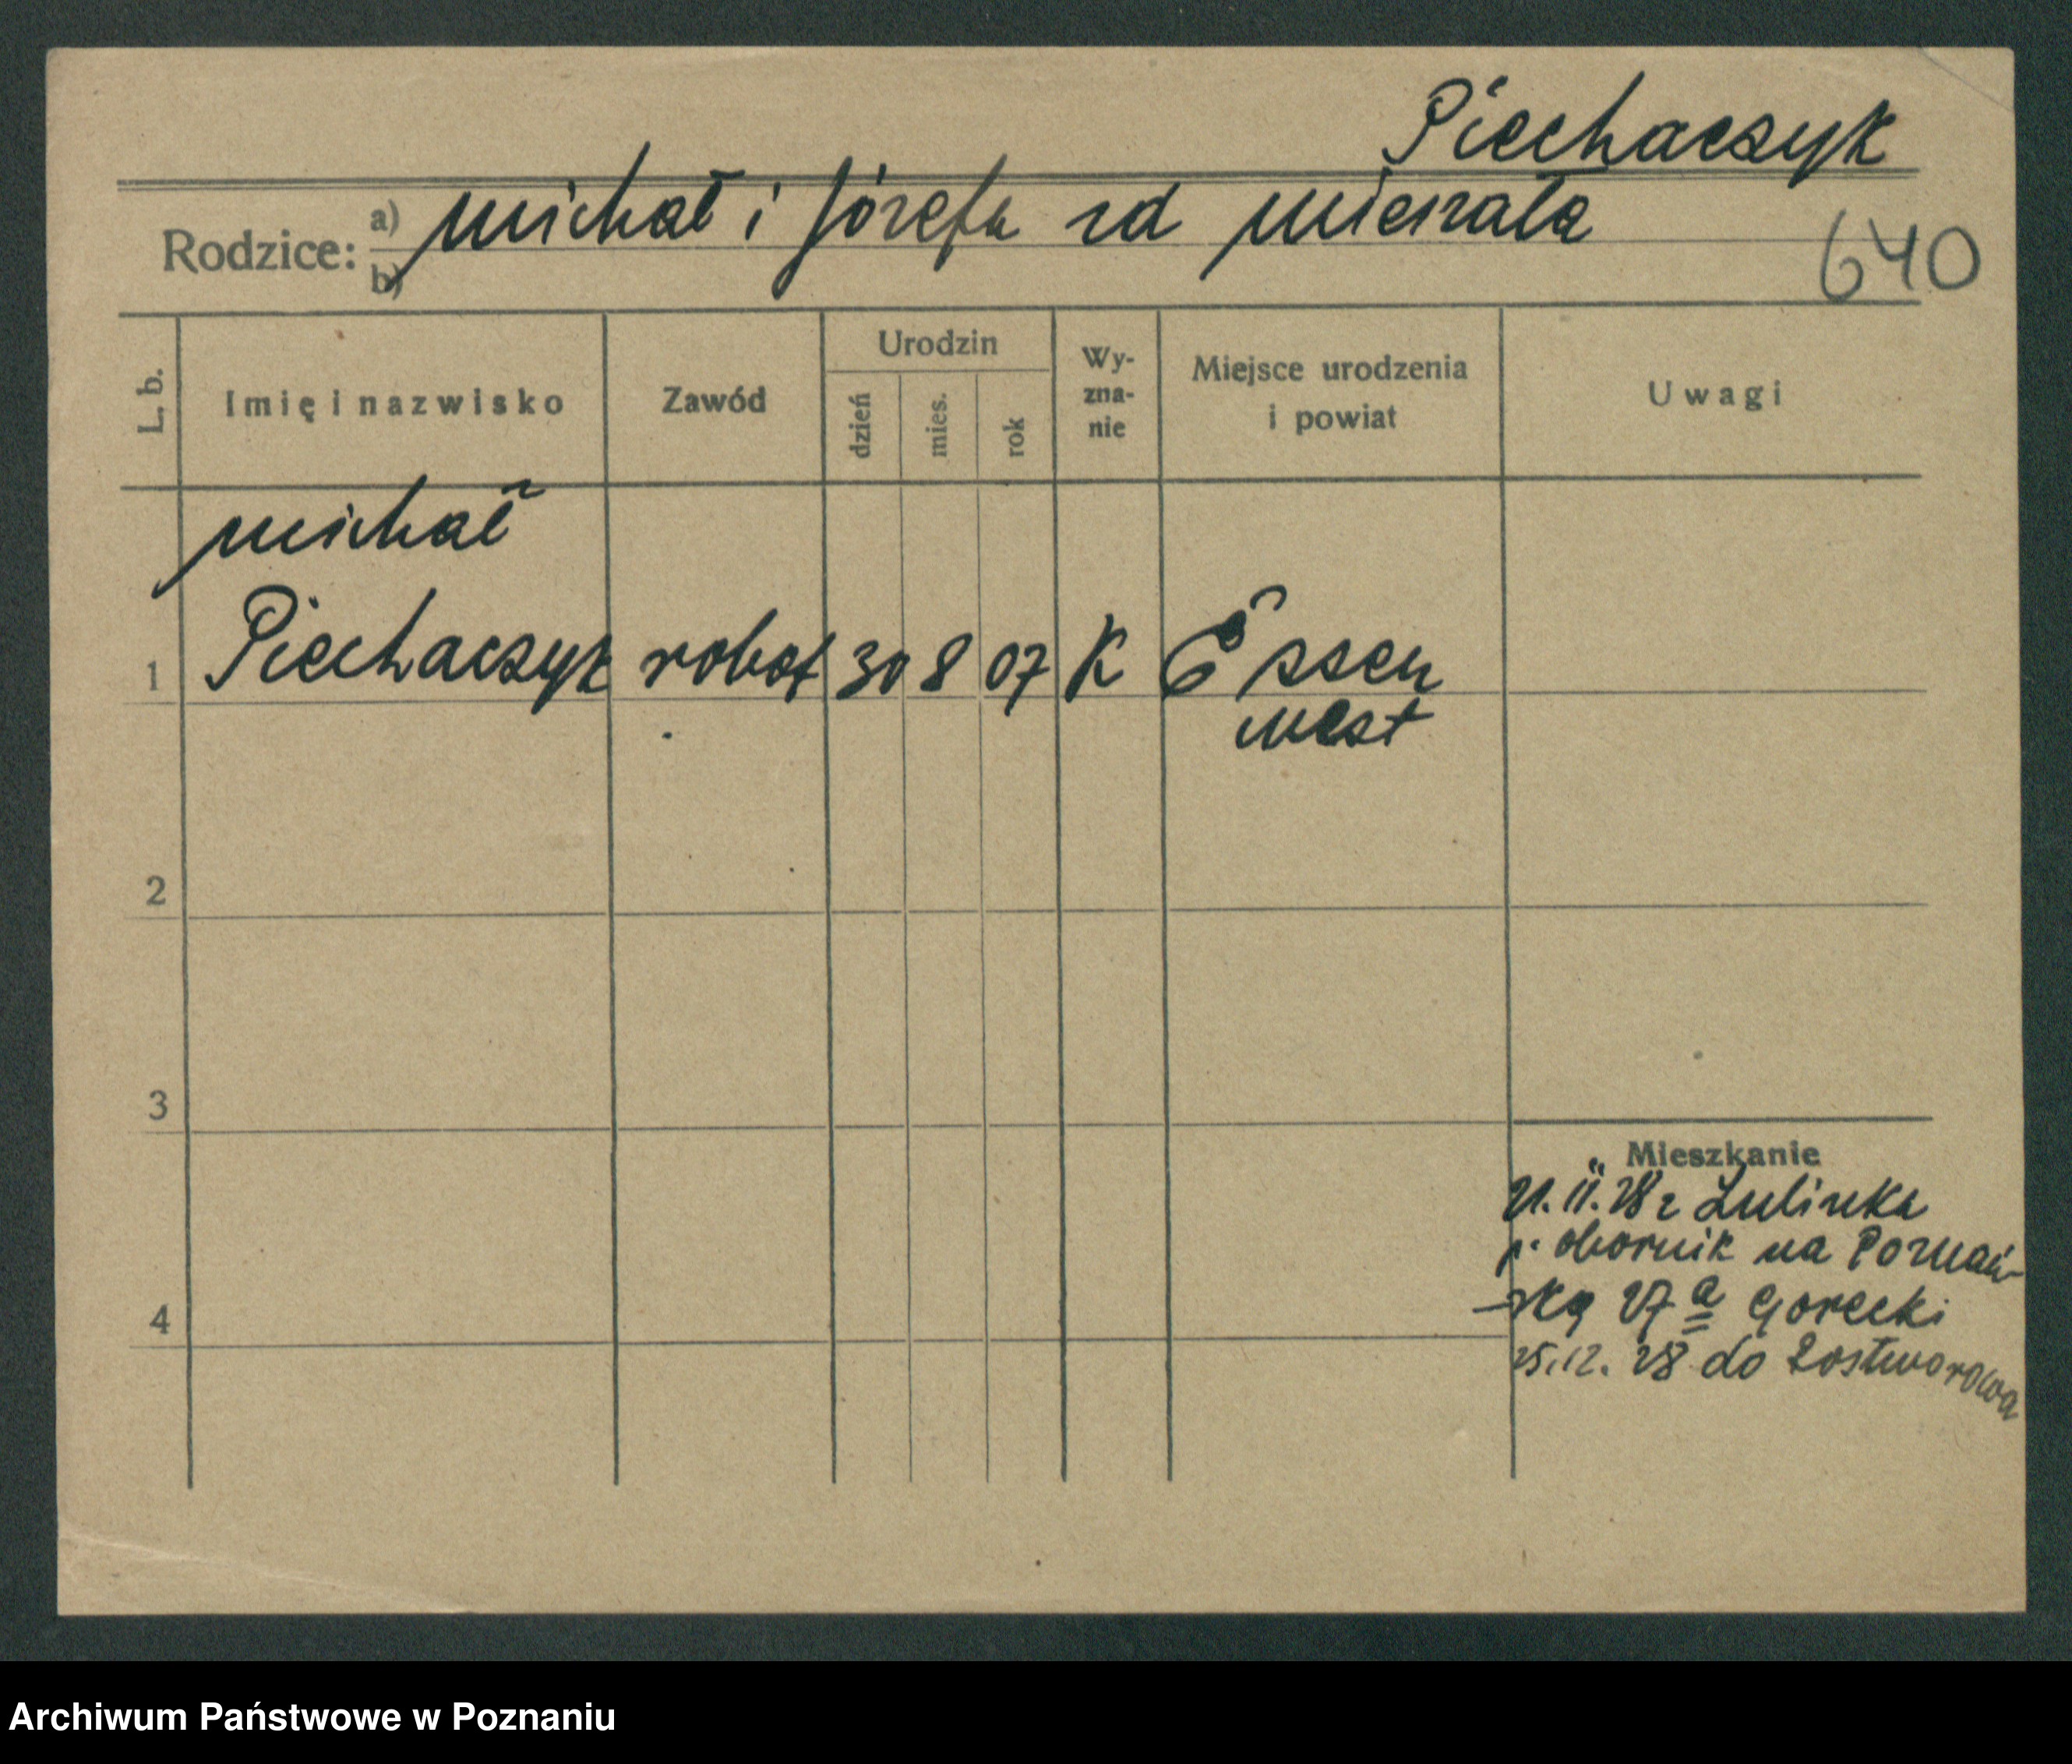 Piechaczyk
Rodzice: a) Michał i Józefa zd Mierzała
b)
640
L. b.
Imię i nazwisko
Zawód
Urodzin
dzień
mies.
rok
Wy-
zna-
nie
Miejsce urodzenia
i powiat
Uwagi
Michał
1 Piechaczyk robot 30 8 07 K Essen
West
2
3
Mieszkanie
21. 11. 28 z Lulinka
p. Obornik na Poznań-
4
-ską 27 a Gorecki
25.12. 28 do Rostworowa
Archiwum Państwowe w Poznaniu